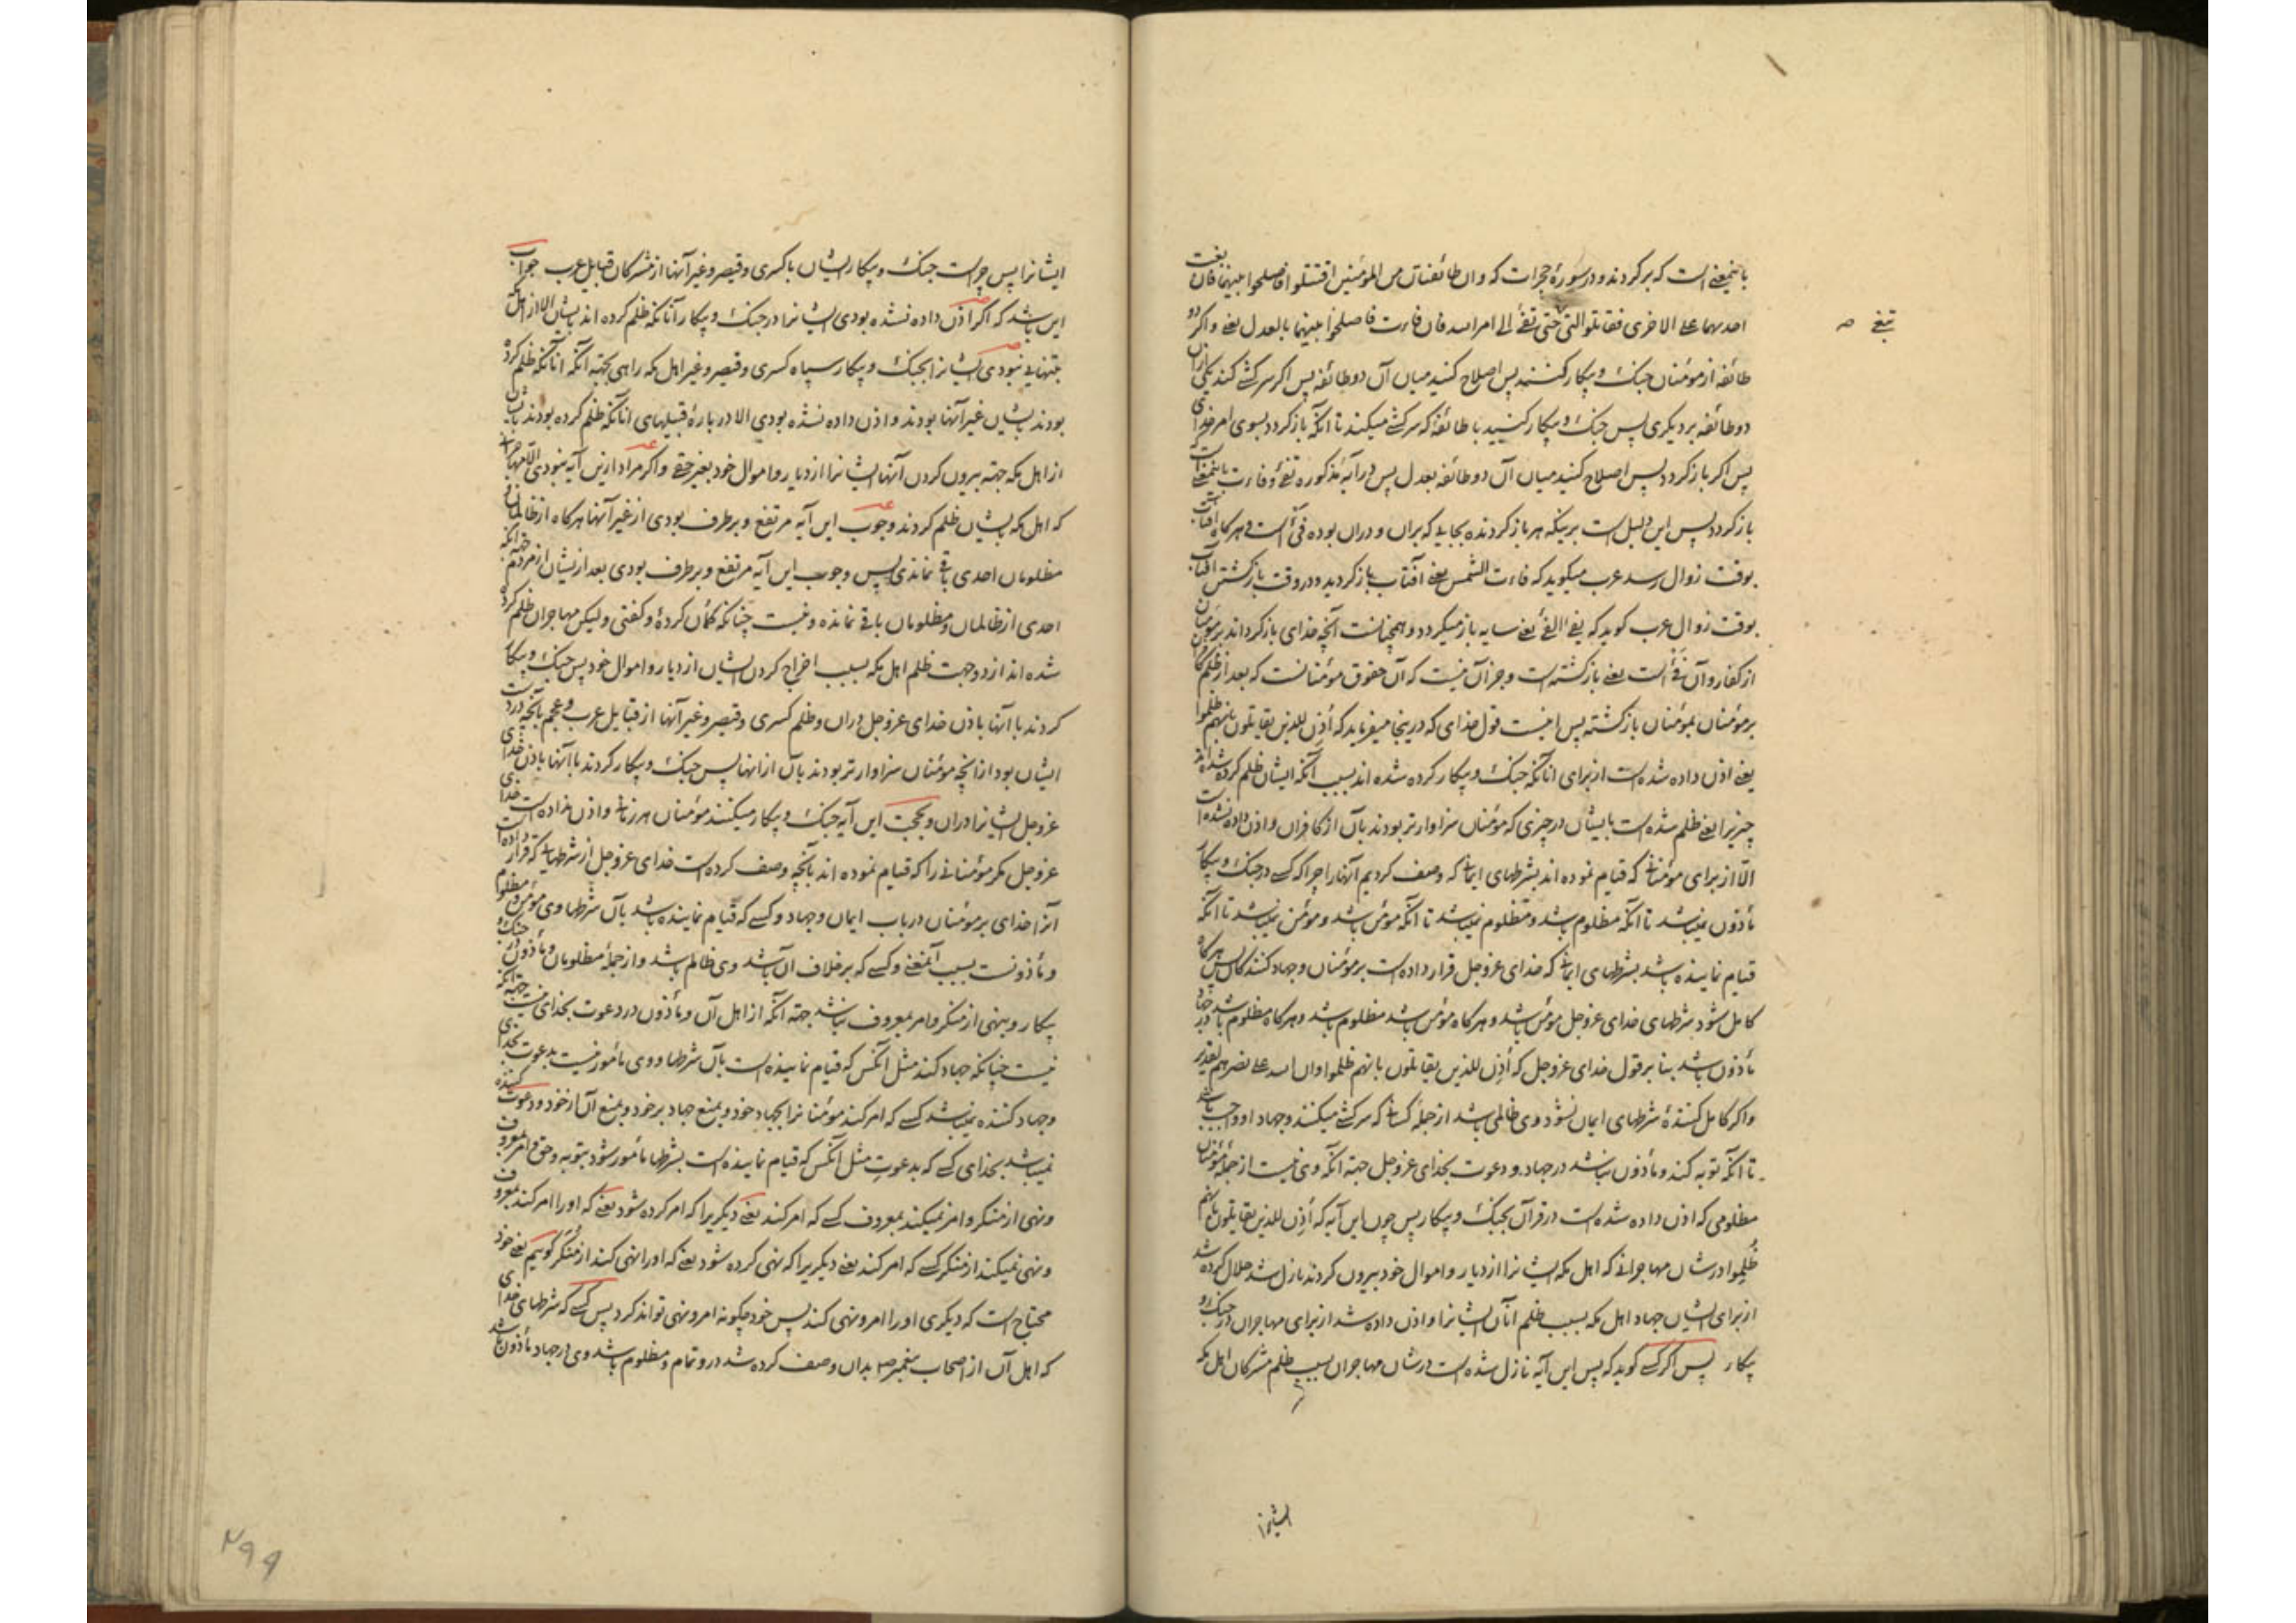 باینمعنی است که برکردند و در سورهٔ حجرات که وان طائفتان من المؤمنین اقتتلوا فاصلحوا بینهما فان بغت
احدیهما علی الاخری فقاتلوا التی حتی تفیٔ الی امر الله فان فاءت فاصلحوا بینهما بالعدل یعنی واکر دو
تبغی صح
طائفه از مومنان جنک و پیکار کنند پس اصلاح کنید میان آن دو طائفه پس اکر سرکشی کند یکی ازان
دو طائفه بر دیکری پس جنک و پیکار کنید با طائفهٔ که سرکشی میکند تا آنکه باز کردد بسوی امر خدای
پس اکر باز کردد پس اصلاح کنید میان آن دو طائفه بعدل پس در آیهٔ مذکوره تفیٔ و فاءت باینمعنی است
باز کردد پس این دلیل است برینکه هر باز کردنده بجایی که بران و دران بوده فیٔ است و هرکاه آفتاب
بوقت زوال رسد عرب میکوید که فاءت الشمس یعنی آفتاب باز کردید و در وقت باز کشتن آفتاب
بوقت زوال عرب کوید که یفیٔ الفیٔ یعنی سایه باز میکردد و همچنانست آنچه خدای باز کرداند بر مومنان
از کفار و آن فیٔ است یعنی باز کشته است و جز آن نیست که آن حقوق مومنانست که بعد از ظلم کفار
بر مومنان بمومنان باز کشته پس اینست قول خدای که در ینجا میفرماید که أُذِن للذین یقاتلون بانهم ظلموا
یعنی اذن داده شده است از برای انانکه جنک و پیکار کرده شده اند بسبب آنکه ایشان ظلم کرده شده اند
چیزیرا یعنی ظلم شده است بایشان در چیزی که مومنان سزاوارتر بودند بآن از کافران و اذن داده نشده است
الّا از برای مومنانی که قیام نموده اند بشرطهای ایمانی که وصف کردیم آنهارا چرا که کسی در جنک و پیکار
مأذون نمیباشد تا آنکه مظلوم باشد و مظلوم نمیباشد تا آنکه مومن باشد و مومن نمیباشد تا آنکه
قیام نماینده باشد بشرطهای ایمانی که خدای عزوجل قرار داده است بر مومنان و جهاد کنندکان پس هرکاه
کامل شود شرطهای خدای عزوجل مومن باشد و هرکاه مومن باشد مظلوم باشد و هرکاه مظلوم باشد در جهاد
مأذون باشد بنا بر قول خدای عزوجل که أُذِن للذین یقاتلون بانهم ظلموا وان الله علی نصرهم لقدیر
واکر کامل کنندهٔ شرطهای ایمان نشود وی ظالمی باشد از جملهٔ کسانی که سرکشی میکنند و جهاد او واجب باشد
تا آنکه توبه کند و مأذون نباشد در جهاد و دعوت بخدای عزوجل جهة آنکه وی نیست از جملهٔ مومنان
مظلومی که اذن داده شده است در قرآن بجنک و پیکار پس چون این آیه که أُذِن للذین یقاتلون بانهم
ظُلِموا در شان مهاجرانی که اهل مکه ایشانرا از دیار و اموال خود بیرون کردند نازل شد حلال کرده شد
از برای ایشان جهاد اهل مکه بسبب ظلم آنان ایشانرا و اذن داده شد از برای مهاجران در جنک و
پیکار پس اکر کسی کوید که پس این آیه نازل شده است در شان مهاجران بسبب ظلم مشرکان اهل مکه
ایشانرا
ایشانرا پس چراست جنک و پیکار ایشان با کسری و قیصر و غیر آنها از مشرکان قبایل عرب جواب
این باشد که اکر اذن داده نشده بودی ایشانرا در جنک و پیکار آنانکه ظلم کرده اند بایشان الا از اهل مکه
بتنهایی نبودی ایشانرا بجنک و پیکار سپاه کسری و قیصر و غیر اهل مکه راهی بجهة آنکه انانکه ظلم کرده
بودند بایشان غیر آنها بودند و اذن داده نشده بودی الا در بارهٔ قبیلهای انانکه ظلم کرده بودند بایشان
از اهل مکه جهة بیرون کردن آنها ایشانرا از دیار و اموال خود بغیر حق واکر مراد ازین آیه نبودی الّا مهاجرانی
که اهل مکه بایشان ظلم کردند وجوب این آیه مرتفع و برطرف بودی از غیر آنها هرکاه از ظالمان و
مظلومان احدی باقی نماندی پس وجوب این آیه مرتفع و برطرف بودی بعد از یشان از مردم جهة آنکه
احدی از ظالمان و مظلومان باقی نمانده و نیست چنانکه کمان کردهٔ و کفتی ولیکن مهاجران ظلم کرده
شده اند از دو جهت ظلم اهل مکه بسبب اخراج کردن ایشان از دیار و اموال خود پس جنک و پیکار
کردند با آنها باذن خدای عزوجل دران و ظلم کسری و قیصر و غیر آنها از قبایل عرب و عجم بآنچه در دست
ایشان بود از انچه مومنان سزاوارتر بودند بآن ازانها پس جنک و پیکار کردند با آنها باذن خدای
عزوجل ایشانرا دران و بحجت این آیه جنک و پیکار میکنند مومنان هر زمانی و اذن نداده است خدای
عزوجل مکر مومنانی را که قیام نموده اند بآنچه وصف کرده است خدای عزوجل از شرطهایی که قرار داده است
آنرا خدای بر مومنان در باب ایمان و جهاد و کسی که قیام نماینده باشد بآن شرطها وی مومن و مظلوم
و مأذونست بسبب آنمعنی و کسی که بر خلاف آن باشد وی ظالم باشد و از جملهٔ مظلومان و مأذون در جنک و
پیکار و بنهی از منکر و امر بمعروف نباشد جهة آنکه از اهل آن و مأذون در دعوت بخدای نیست جهة آنکه
نیست چنانکه جهاد کند مثل آنکس که قیام نماینده است بآن شرطها و وی مأمور نیست بدعوت بخدای
و جهاد کننده نمیباشد کسی که امر کند مومنانرا بجهاد خود و بمنع جهاد بر خود و بمنع آن از خود و دعوت کننده
نمیباشد بخدای کسی که بدعوتِ مثل آنکس که قیام نماینده است بشرطها مأمور شود بتوبه و حق و امر بمعروف
و نهی از منکر و امر نمیکند بمعروف کسی که امر کند یعنی دیکریرا که امر کرده شود یعنی که اورا امر کند بمعروف
و نهی نمیکند از منکر کسی که امر کند یعنی دیکریرا که نهی کرده شود یعنی که اورا نهی کند از منکر کوییم یعنی خود
محتاج است که دیکری اورا امر و نهی کند پس خود چکونه امر و نهی تواند کرد پس کسی که شرطهای خدای
که اهل آن از اصحاب پیغمبر ص بدان وصف کرده شد در و تمام و مظلوم باشد وی در جهاد مأذون باشد
۲۹۹